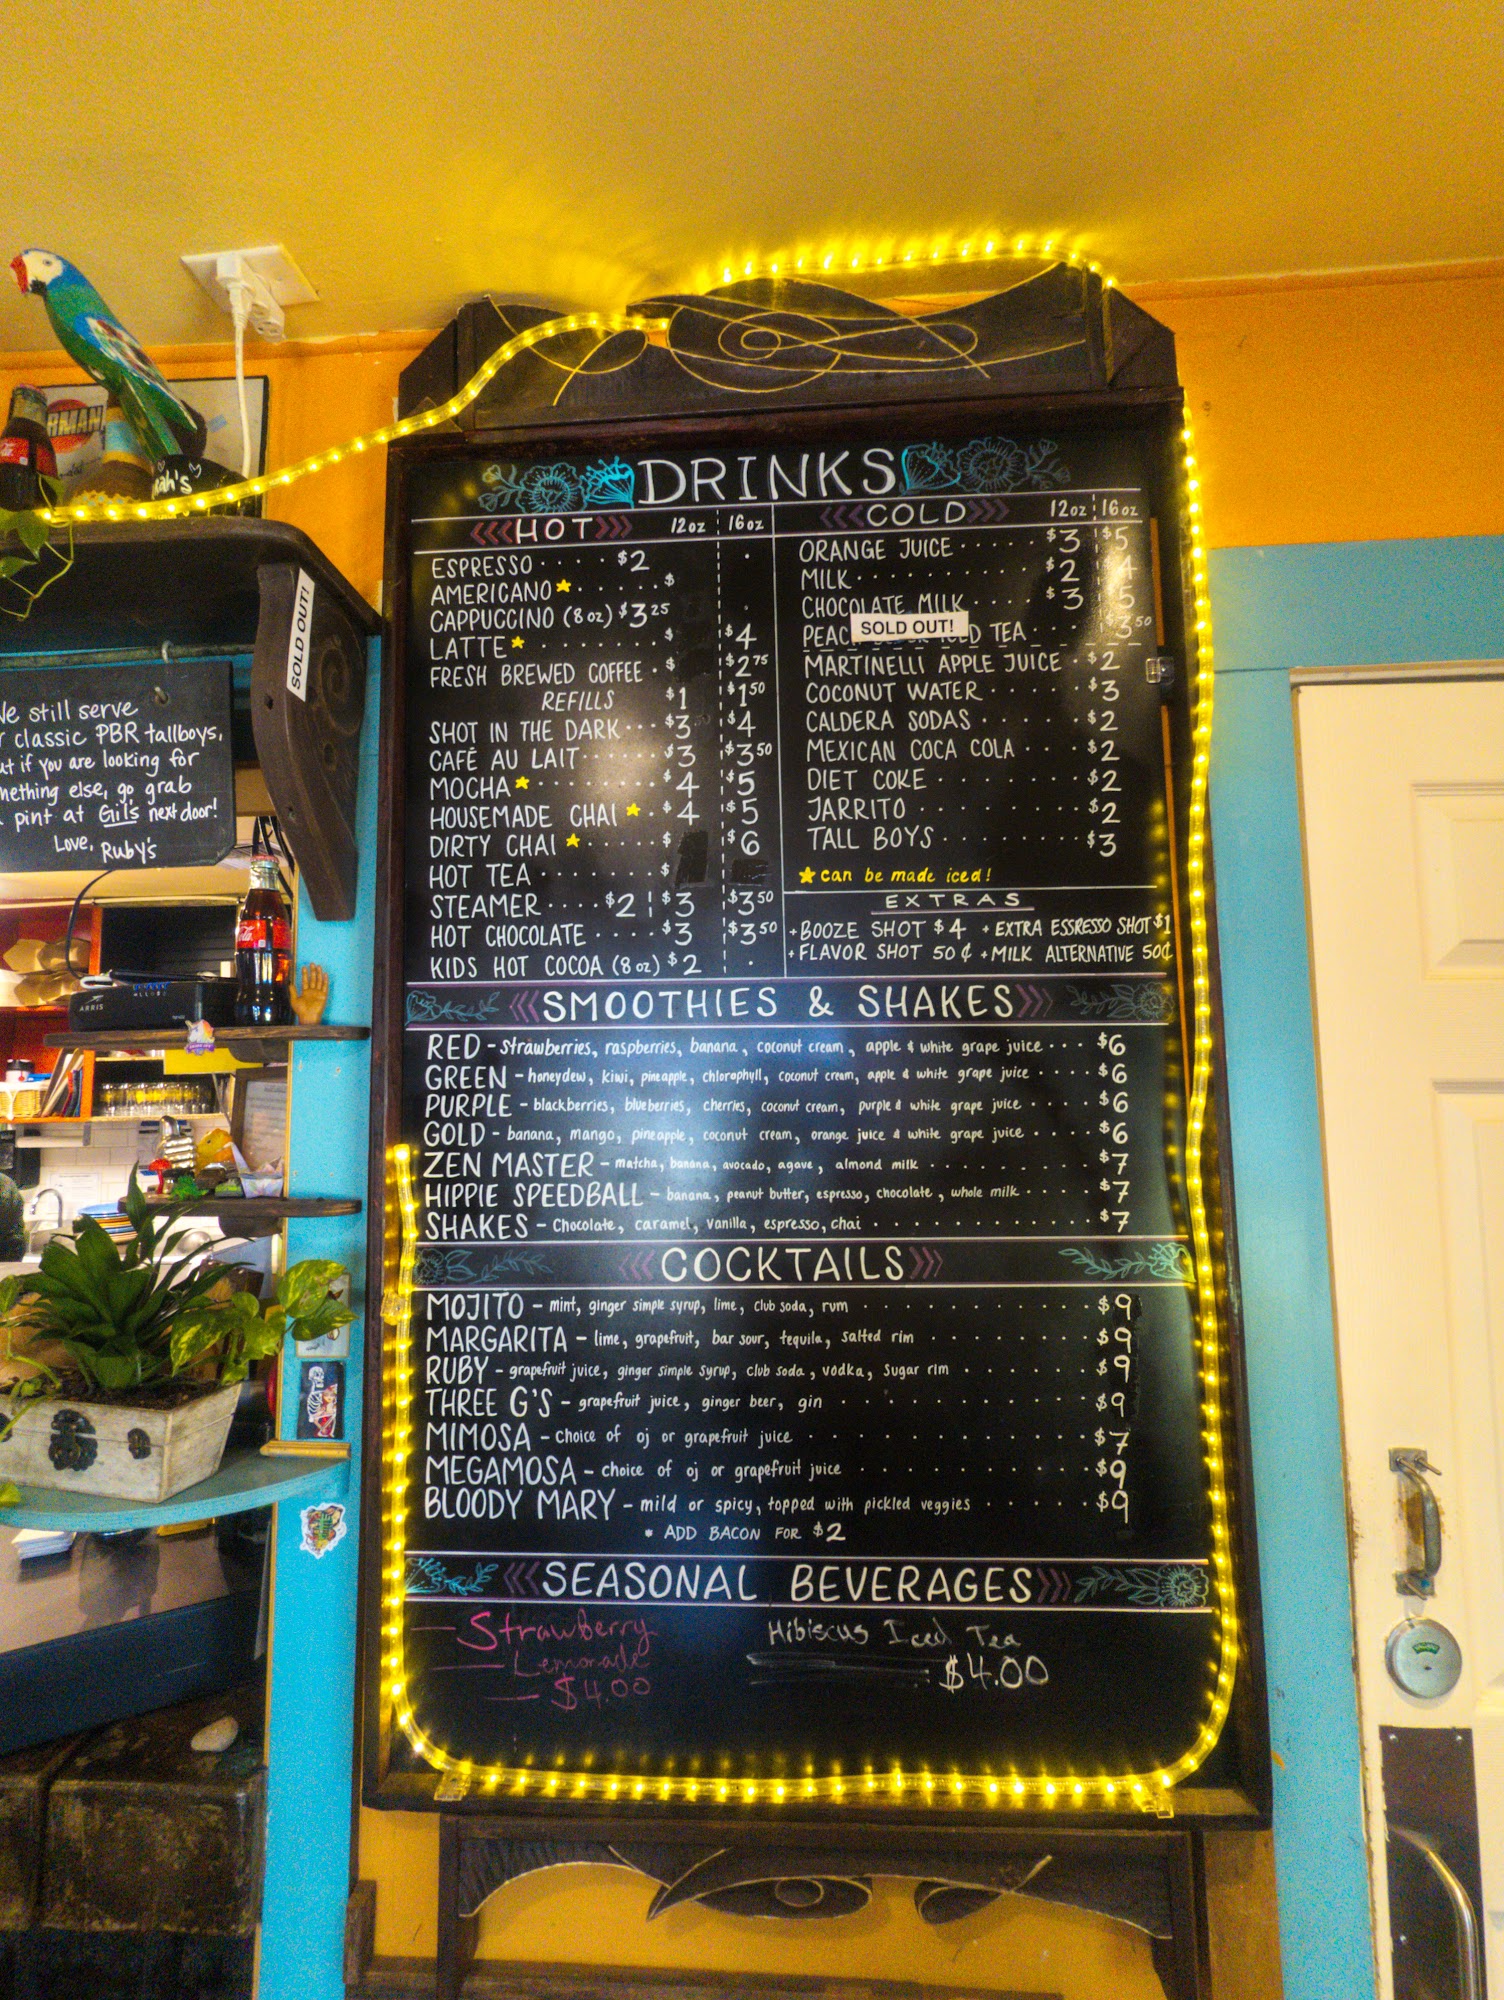 RMAN
ah's
SOLD OUT!
We still serve
r classic PBR tallboys,
ut if you are looking for
mething else, go grab
pint at Gil's next door!
Love, Ruby's
ARRIS
DRINKS
HOT 12oz 16oz
ESPRESSO $2
AMERICANO $
CAPPUCCINO (8oz) $3 25
LATTE $ $4
FRESH BREWED COFFEE $ $2 75
REFILLS $1 $1 50
SHOT IN THE DARK $3 $4
CAFÉ AU LAIT $3 $3 50
MOCHA $4 $5
HOUSEMADE CHAI $4 $5
DIRTY CHAI $ $6
HOT TEA $
STEAMER $2 $3 $3 50
HOT CHOCOLATE $3 $3 50
KIDS HOT COCOA (8oz) $2
COLD 12oz 16oz
ORANGE JUICE $3 $5
MILK $2 4
CHOCOLATE MILK $3 5
PEAC SOLD OUT! ICED TEA $3 50
MARTINELLI APPLE JUICE $2
COCONUT WATER $3
CALDERA SODAS $2
MEXICAN COCA COLA $2
DIET COKE $2
JARRITO $2
TALL BOYS $3
can be made iced!
EXTRAS
+BOOZE SHOT $4 +EXTRA ESSRESSO SHOT $1
+FLAVOR SHOT 50¢ +MILK ALTERNATIVE 50¢
SMOOTHIES & SHAKES
RED - strawberries, raspberries, banana, coconut cream, apple & white grape juice $6
GREEN - honeydew, kiwi, pineapple, chlorophyll, coconut cream, apple & white grape juice $6
PURPLE - blackberries, blueberries, cherries, coconut cream, purple & white grape juice $6
GOLD - banana, mango, pineapple, coconut cream, orange juice & white grape juice $6
ZEN MASTER - matcha, banana, avocado, agave, almond milk $7
HIPPIE SPEEDBALL - banana, peanut butter, espresso, chocolate, whole milk $7
SHAKES - Chocolate, caramel, vanilla, espresso, chai $7
COCKTAILS
MOJITO - mint, ginger simple syrup, lime, club soda, rum $9
MARGARITA - lime, grapefruit, bar sour, tequila, salted rim $9
RUBY - grapefruit juice, ginger simple syrup, club soda, vodka, sugar rim $9
THREE G'S - grapefruit juice, ginger beer, gin $9
MIMOSA - choice of oj or grapefruit juice $7
MEGAMOSA - choice of oj or grapefruit juice $9
BLOODY MARY - mild or spicy, topped with pickled veggies $9
* ADD BACON FOR $2
SEASONAL BEVERAGES
Strawberry
Lemonade
$4.00
Hibiscus Iced Tea
$4.00